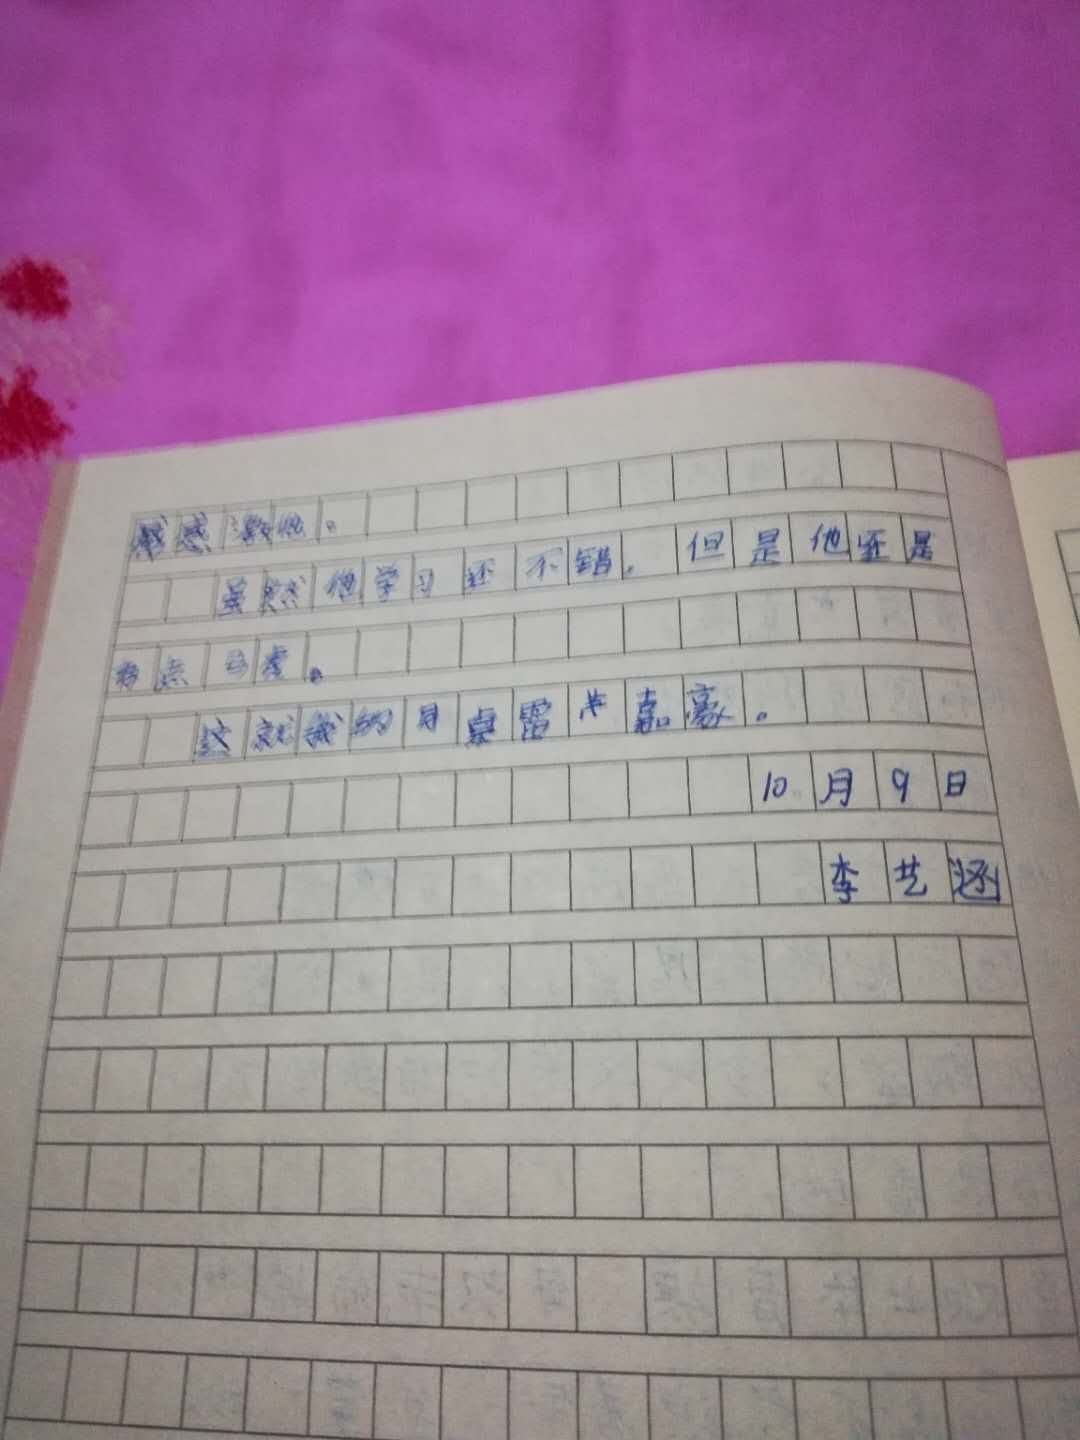 感激他。
虽然他学习还不错。但是他还是
有点马虎。
这就我的同桌雷嘉豪。
10月9日
李艺涵